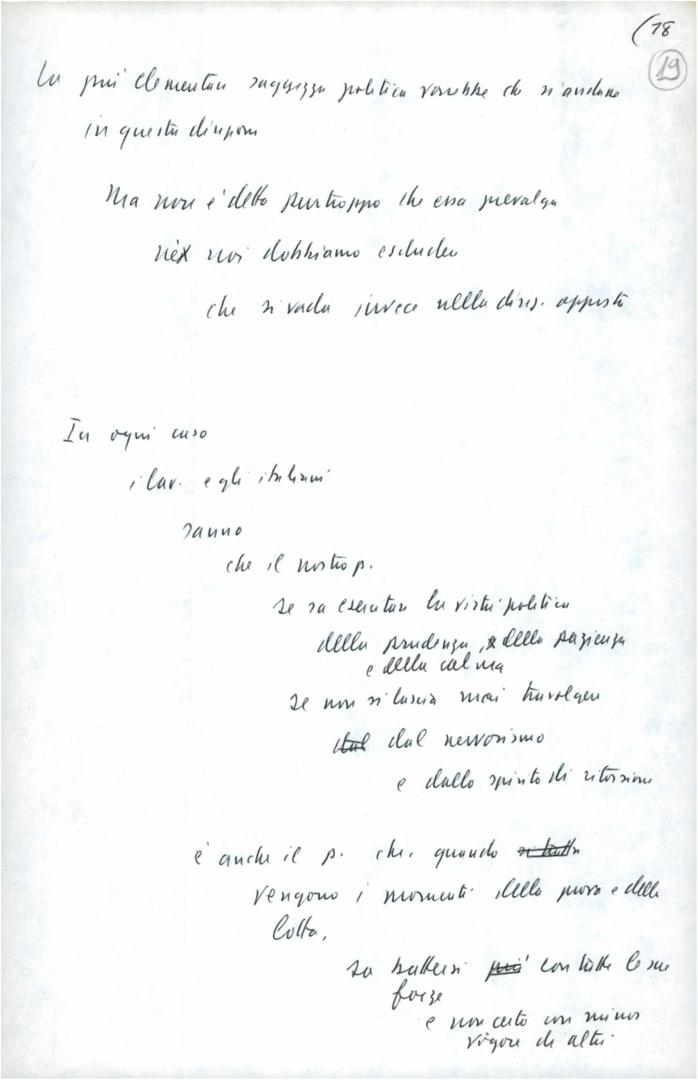 (18
19
La più elementare saggezza politica vorrebbe che si andasse
in questa direzione
Ma non è detto purtroppo che essa prevalga
né noi dobbiamo escludere
che si vada invece nella direz. opposta
In ogni caso
i lav. e gli italiani
sanno
che il nostro p.
se sa esercitare la virtù politica
della prudenza, della pazienza
e della calma
se non si lascia mai travolgere
dal dal nervosismo
e dallo spirito di ritorsione
è anche il p. che, quando si batte
vengono i momenti della prova e della
lotta,
sa battersi più con tutte le sue
forze
e non certo con minor
vigore di altri